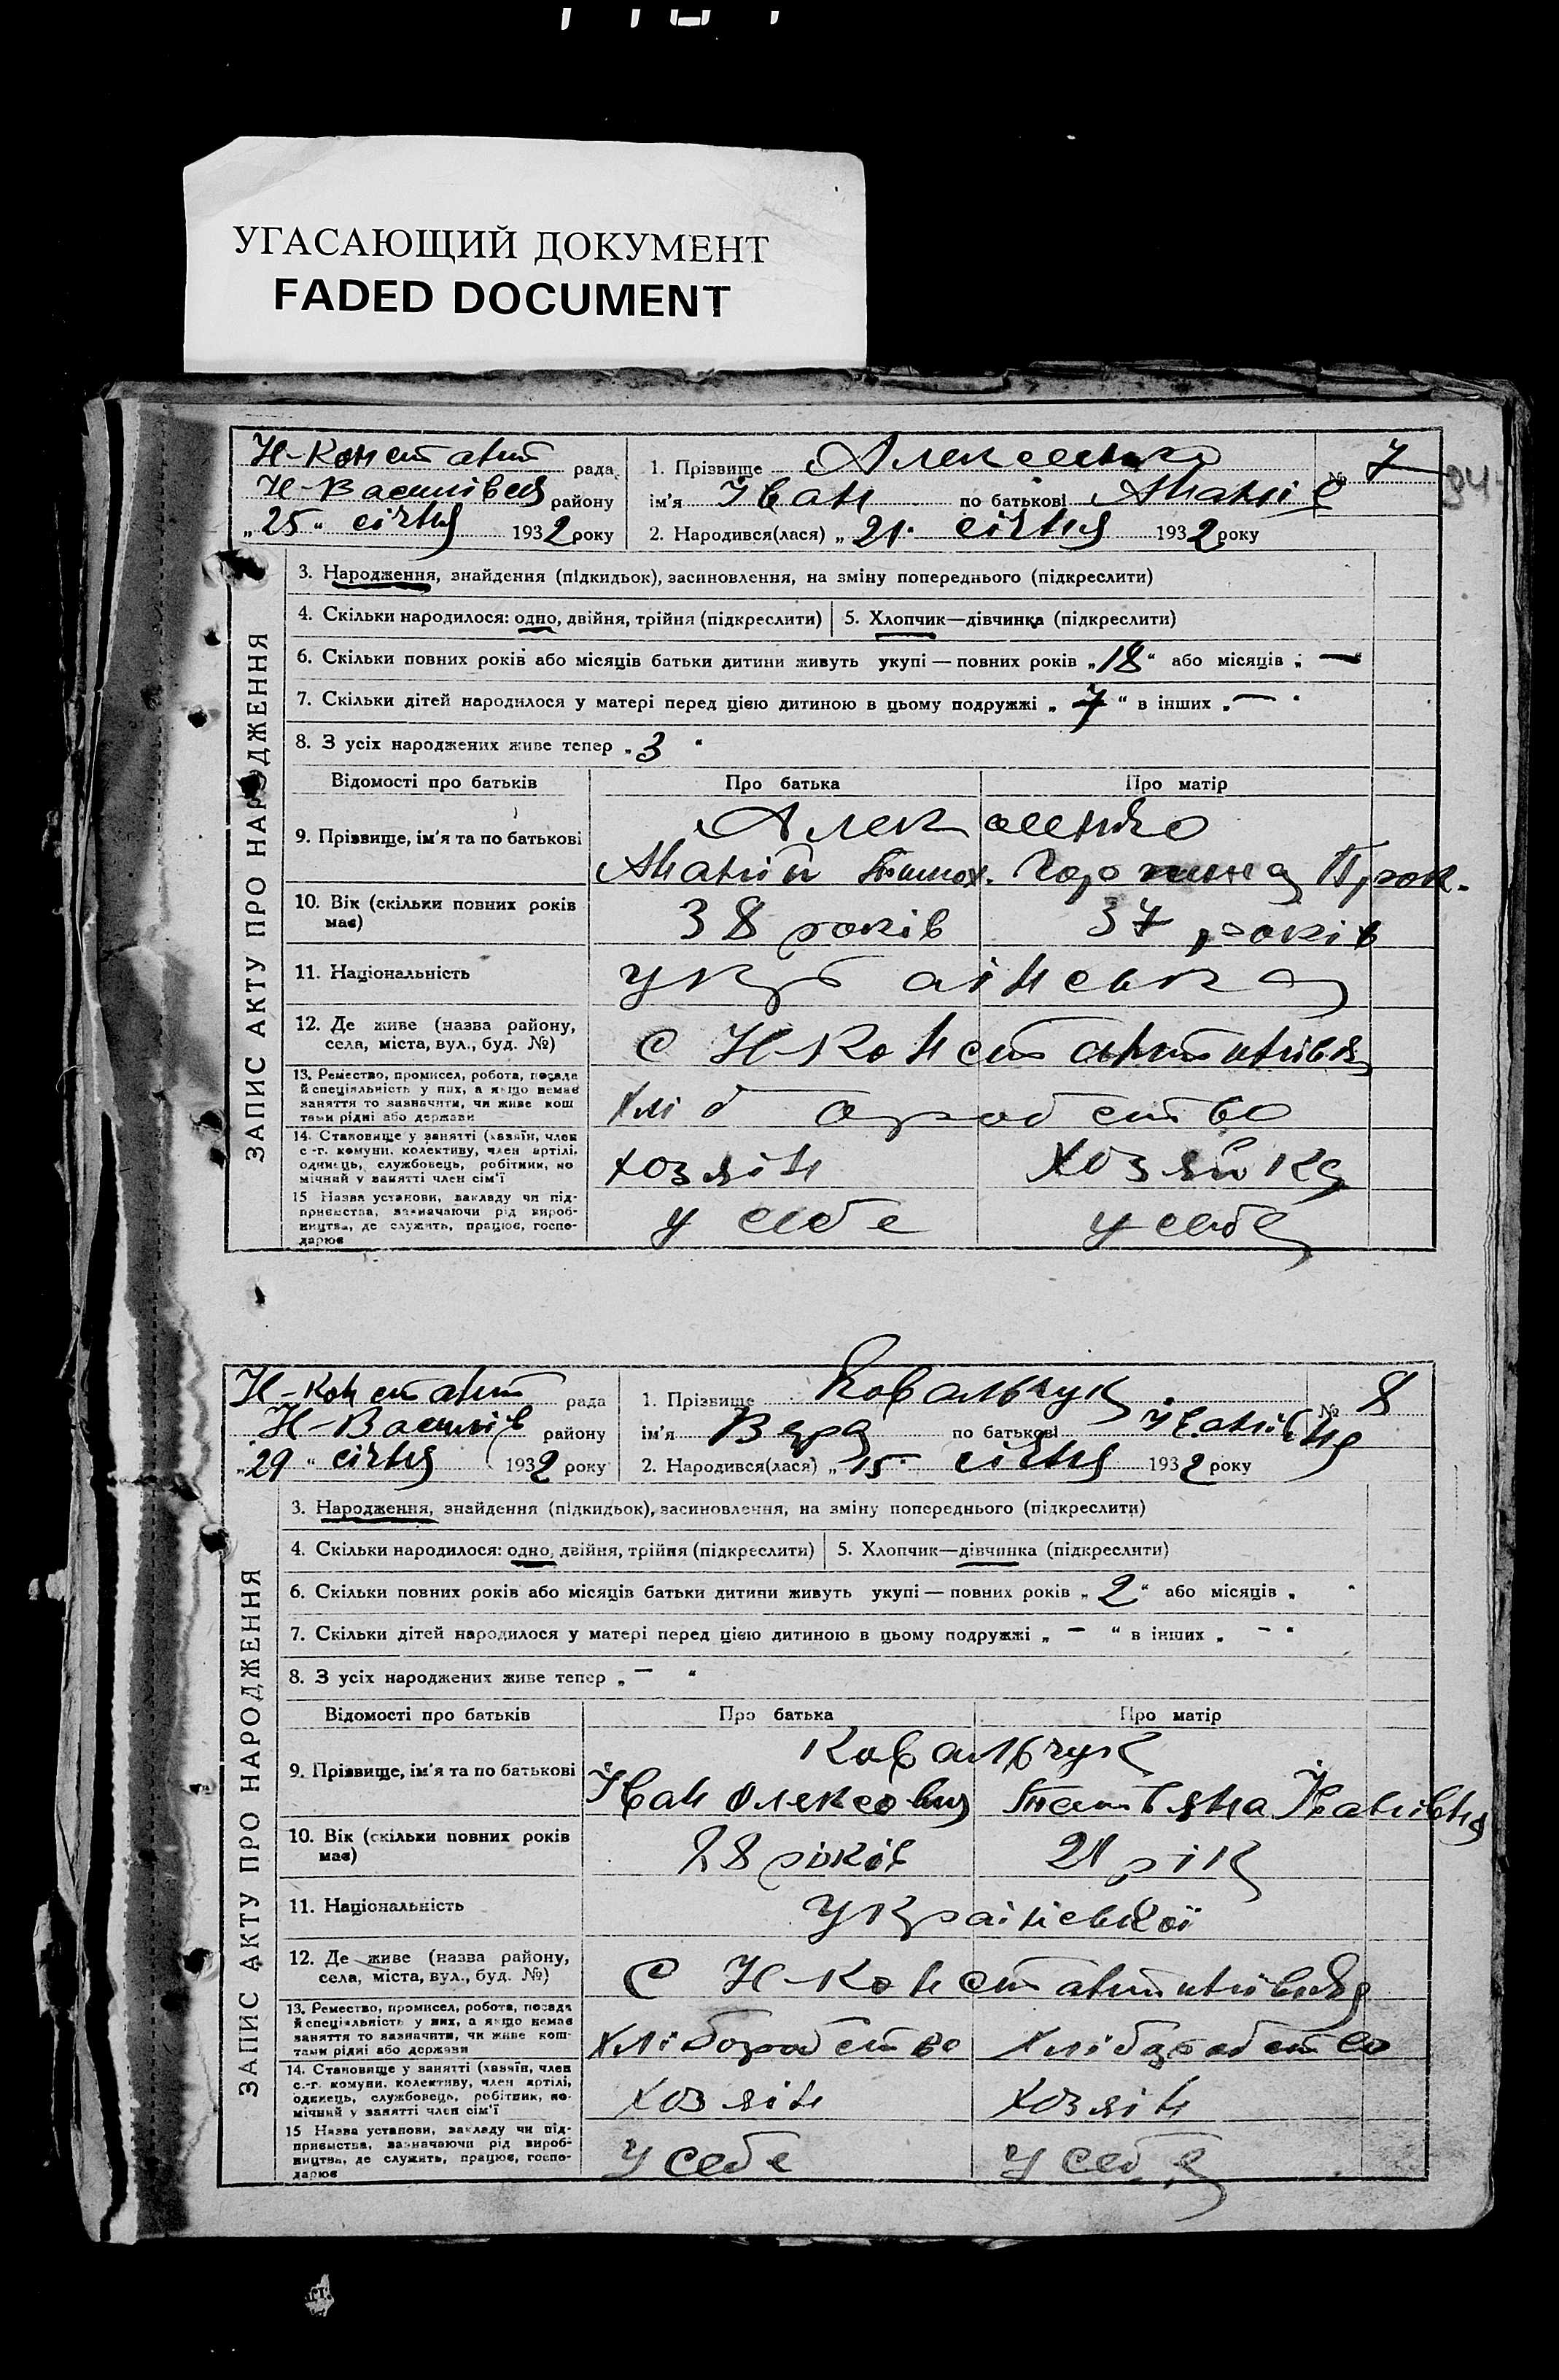 УГАСАЮЩИЙ ДОКУМЕНТ
FADED DOCUMENT
Н-Констант рада
Н-Василівка району
„25“ січня 1932 року
1. Прізвище Алексеенко
№ 7
ім'я Іван по батькові
2. Народився(лася) „21“ січня 1932 року
ЗАПИС АКТУ ПРО НАРОДЖЕННЯ
3. Народження, знайдення (підкидьок), засиновлення, на зміну попереднього (підкреслити)
4. Скільки народилося: одно, двійня, трійня (підкреслити) 5. Хлопчик—дівчинка (підкреслити)
6. Скільки повних років або місяців батьки дитини живуть укупі — повних років „18“ або місяців „—“
7. Скільки дітей народилося у матері перед цією дитиною в цьому подружжі „7“ в інших „—“
8. З усіх народжених живе тепер „3“
Відомості про батьків Про батька Про матір
9. Прізвище, ім'я та по батькові
Алексеенко
Прок.
10. Вік (скільки повних років має)
38 років 37 років
11. Національність
українська
12. Де живе (назва району, села, міста, вул., буд. №)
с Н-Константинівка
13. Ремество, промисел, робота, посада й спеціяльність у них, а якщо немає заняття то зазначити, чи живе коштами рідні або держави
хліборобство
14. Становище у занятті (хазяїн, член с.-г. комуни, колективу, член артілі, одинець, службовець, робітник, помічний у занятті член сім'ї
хозяїн хозяйка
15 Назва установи, закладу чи підприємства, зазначаючи рід виробництва, де служить, працює, господарює
у себе у себе
Н-Констант рада
Н-Василів району
„29“ січня 1932 року
1. Прізвище Ковальчук
№ 8
ім'я Вера по батькові Іванівна
2. Народився(лася) „15“ січня 1932 року
ЗАПИС АКТУ ПРО НАРОДЖЕННЯ
3. Народження, знайдення (підкидьок), засиновлення, на зміну попереднього (підкреслити)
4. Скільки народилося: одно, двійня, трійня (підкреслити) 5. Хлопчик—дівчинка (підкреслити)
6. Скільки повних років або місяців батьки дитини живуть укупі — повних років „2“ або місяців „ “
7. Скільки дітей народилося у матері перед цією дитиною в цьому подружжі „—“ в інших „—“
8. З усіх народжених живе тепер „—“
Відомості про батьків Про батька Про матір
9. Прізвище, ім'я та по батькові
Ковальчук
Іван Олексович Татьяна Іванівна
10. Вік (скільки повних років має)
28 років 21 рік
11. Національність
української
12. Де живе (назва району, села, міста, вул., буд. №)
с Н-Константинівка
13. Ремество, промисел, робота, посада й спеціяльність у них, а якщо немає заняття то зазначити, чи живе коштами рідні або держави
хліборобство хліборобство
14. Становище у занятті (хазяїн, член с.-г. комуни, колективу, член артілі, одинець, службовець, робітник, помічний у занятті член сім'ї
хозяїн хозяїн
15 Назва установи, закладу чи підприємства, зазначаючи рід виробництва, де служить, працює, господарює
у себе у себе